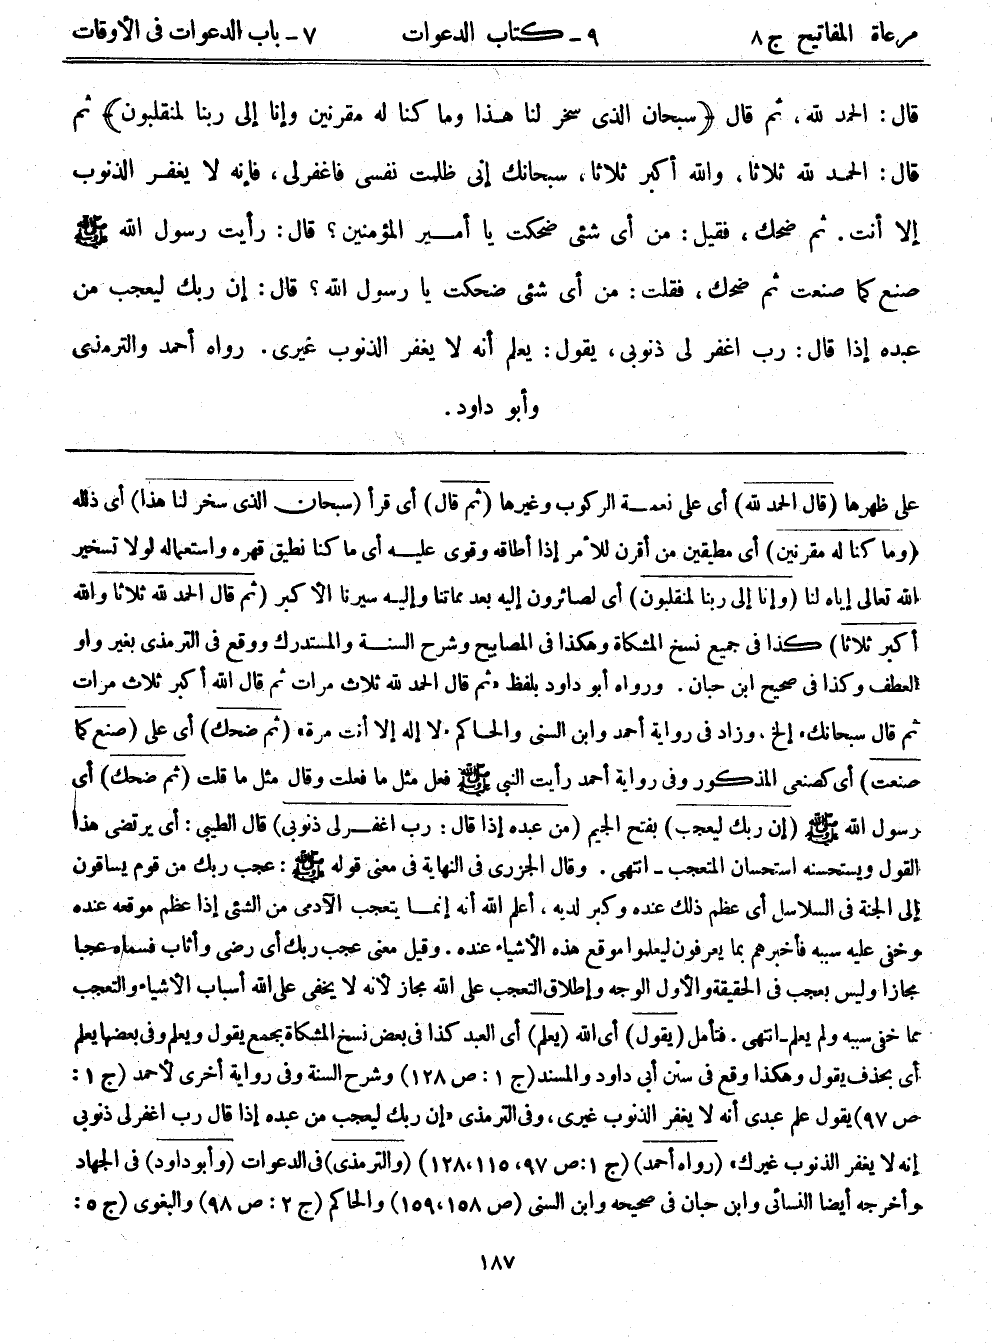 مرعاة المفاتيح ج ٨ ٩ - كتاب الدعوات ٧ - باب الدعوات فى الأوقات
قال: الحمد لله، ثم قال ﴿سبحان الذى سخر لنا هذا وما كنا له مقرنين وإنا إلى ربنا لمنقلبون﴾ ثم
قال: الحمد لله ثلاثا، والله أكبر ثلاثا، سبحانك إنى ظلمت نفسى فاغفرلى، فإنه لا يغفر الذنوب
إلا أنت. ثم ضحك، فقيل: من أى شئى ضحكت يا أمير المؤمنين؟ قال: رأيت رسول الله ﷺ
صنع كما صنعت ثم ضحك، فقلت: من أى شئى ضحكت يا رسول الله؟ قال: إن ربك ليعجب من
عبده إذا قال: رب اغفر لى ذنوبى، يقول: يعلم أنه لا يغفر الذنوب غيرى. رواه أحمد والترمذى
وأبو داود.
على ظهرها (قال الحمد لله) أى على نعمة الركوب وغيرها (ثم قال) أى قرأ (سبحان الذى سخر لنا هذا) أى ذلله
(وما كنا له مقرنين) أى مطيقين من أقرن للأمر إذا أطاقه وقوى عليه أى ما كنا نطيق قهره واستعماله لولا تسخير
الله تعالى إياه لنا (وإنا إلى ربنا لمنقلبون) أى لصائرون إليه بعد مماتنا وإليه سيرنا الأكبر (ثم قال الحمد لله ثلاثا والله
أكبر ثلاثا) كذا فى جميع نسخ المشكاة وهكذا فى المصابيح وشرح السنة والمستدرك ووقع فى الترمذى بغير واو
العطف وكذا فى صحيح ابن حبان. ورواه أبو داود بلفظ «ثم قال الحمد لله ثلاث مرات ثم قال الله أكبر ثلاث مرات
ثم قال سبحانك» إلخ، وزاد فى رواية أحمد وابن السنى والحاكم «لا إله إلا أنت مرة» (ثم ضحك) أى على (صنع كما
صنعت) أى كصنعى المذكور وفى رواية أحمد رأيت النبى ﷺ فعل مثل ما فعلت وقال مثل ما قلت (ثم ضحك) أى
رسول الله ﷺ (إن ربك ليعجب) بفتح الجيم (من عبده إذا قال: رب اغفرلى ذنوبى) قال الطيبى: أى يرتضى هذا
القول ويستحسنه استحسان المتعجب - انتهى. وقال الجزرى فى النهاية فى معنى قوله ﷺ: عجب ربك من قوم يساقون
إلى الجنة فى السلاسل أى عظم ذلك عنده وكبر لديه، أعلم الله أنه إنما يتعجب الآدمى من الشئى إذا عظم موقعه عنده
وخفى عليه سببه فأخبرهم بما يعرفون ليعلموا موقع هذه الأشياء عنده. وقيل معنى عجب ربك أى رضى وأثاب فسماه عجبا
مجازا وليس بعجب فى الحقيقة والأول الوجه وإطلاق التعجب على الله مجاز لأنه لا يخفى على الله أسباب الأشياء والتعجب
مما خفى سببه ولم يعلم-انتهى. فتأمل (يقول) أى الله (يعلم) أى العبد كذا فى بعض نسخ المشكاة بجمع يقول ويعلم وفى بعضها يعلم
أى بحذف يقول وهكذا وقع فى سنن أبى داود والمسند (ج ١: ص ١٢٨) وشرح السنة وفى رواية أخرى لأحمد (ج ١:
ص ٩٧) يقول علم عبدى أنه لا يغفر الذنوب غيرى، وفى الترمذى «إن ربك ليعجب من عبده إذا قال رب اغفرلى ذنوبى
إنه لا يغفر الذنوب غيرك» (رواه أحمد) (ج ١: ص ٩٧، ١١٥، ١٢٨) (والترمذى) فى الدعوات (وأبو داود) فى الجهاد
وأخرجه أيضا النسائى وابن حبان فى صحيحه وابن السنى (ص ١٥٨، ١٥٩) والحاكم (ج ٢: ص ٩٨) والبغوى (ج ٥:
١٨٧